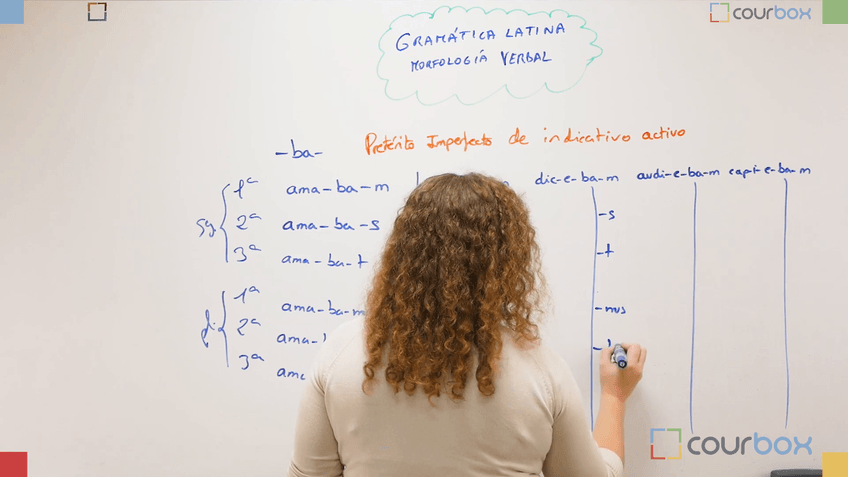 courbox
GRAMÁTICA LATINA
MORFOLOGÍA VERBAL
-ba-
Pretérito Imperfecto de indicativo activo
sg
1ª ama-ba-m
dic-e-ba-m
audi-e-ba-m
capi-e-ba-m
2ª ama-ba-s
-s
3ª ama-ba-t
-t
pl
1ª ama-ba-m
-mus
2ª ama-
3ª ama
courbox